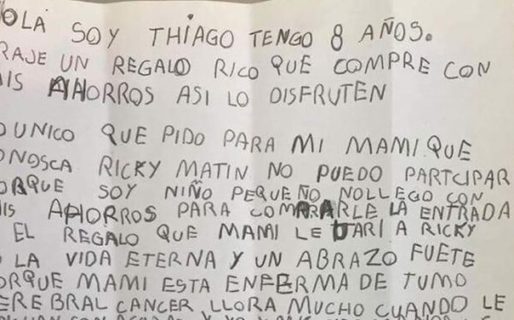 OLA SOY THIAGO TENGO 8 AÑOS.
RAJE UN REGALO RICO QUE COMPRE CON
IS AHORROS ASI LO DISFRUTEN
O UNICO QUE PIDO PARA MI MAMI QUE
ONOSCA RICKY MATIN NO PUEDO PARTCIPAR
ORQUE SOY NIÑO PEQUEÑO NOLLEGO CON
IS AHORROS PARA COMARARLE LA ENTRADA
EL REGALO QUE MAMI LE DARI A RICKY
O LA VIDA ETERNA Y UN ABRAZO FUETE
ORQUE MAMI ESTA ENFERMA DE TUMO
EREBRAL CANCER LLORA MUCHO CUANDO LE